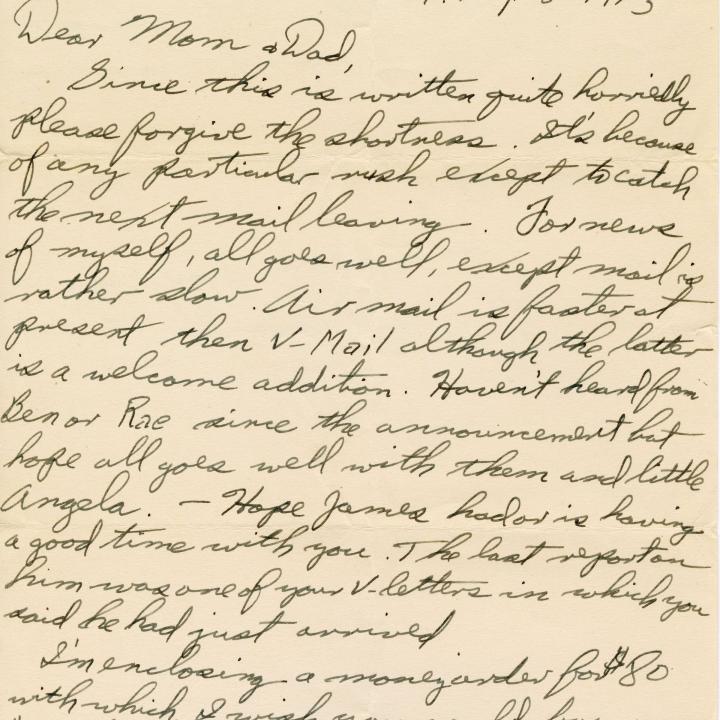 Dear Mom & Dad,
Since this is written quite horriedly
please forgive the shortness. It's because
of any particular rush except to catch
the next mail leaving. For news
of myself, all goes well, except mail is
rather slow. Air mail is faster at
present then V-Mail although the latter
is a welcome addition. Haven't heard from
Ben or Rae since the announcement but
hope all goes well with them and little
Angela. — Hope James had or is having
a good time with you. The last report on
him was one of your V-letters in which you
said he had just arrived
I'm enclosing a money order for $80
with which I wish you